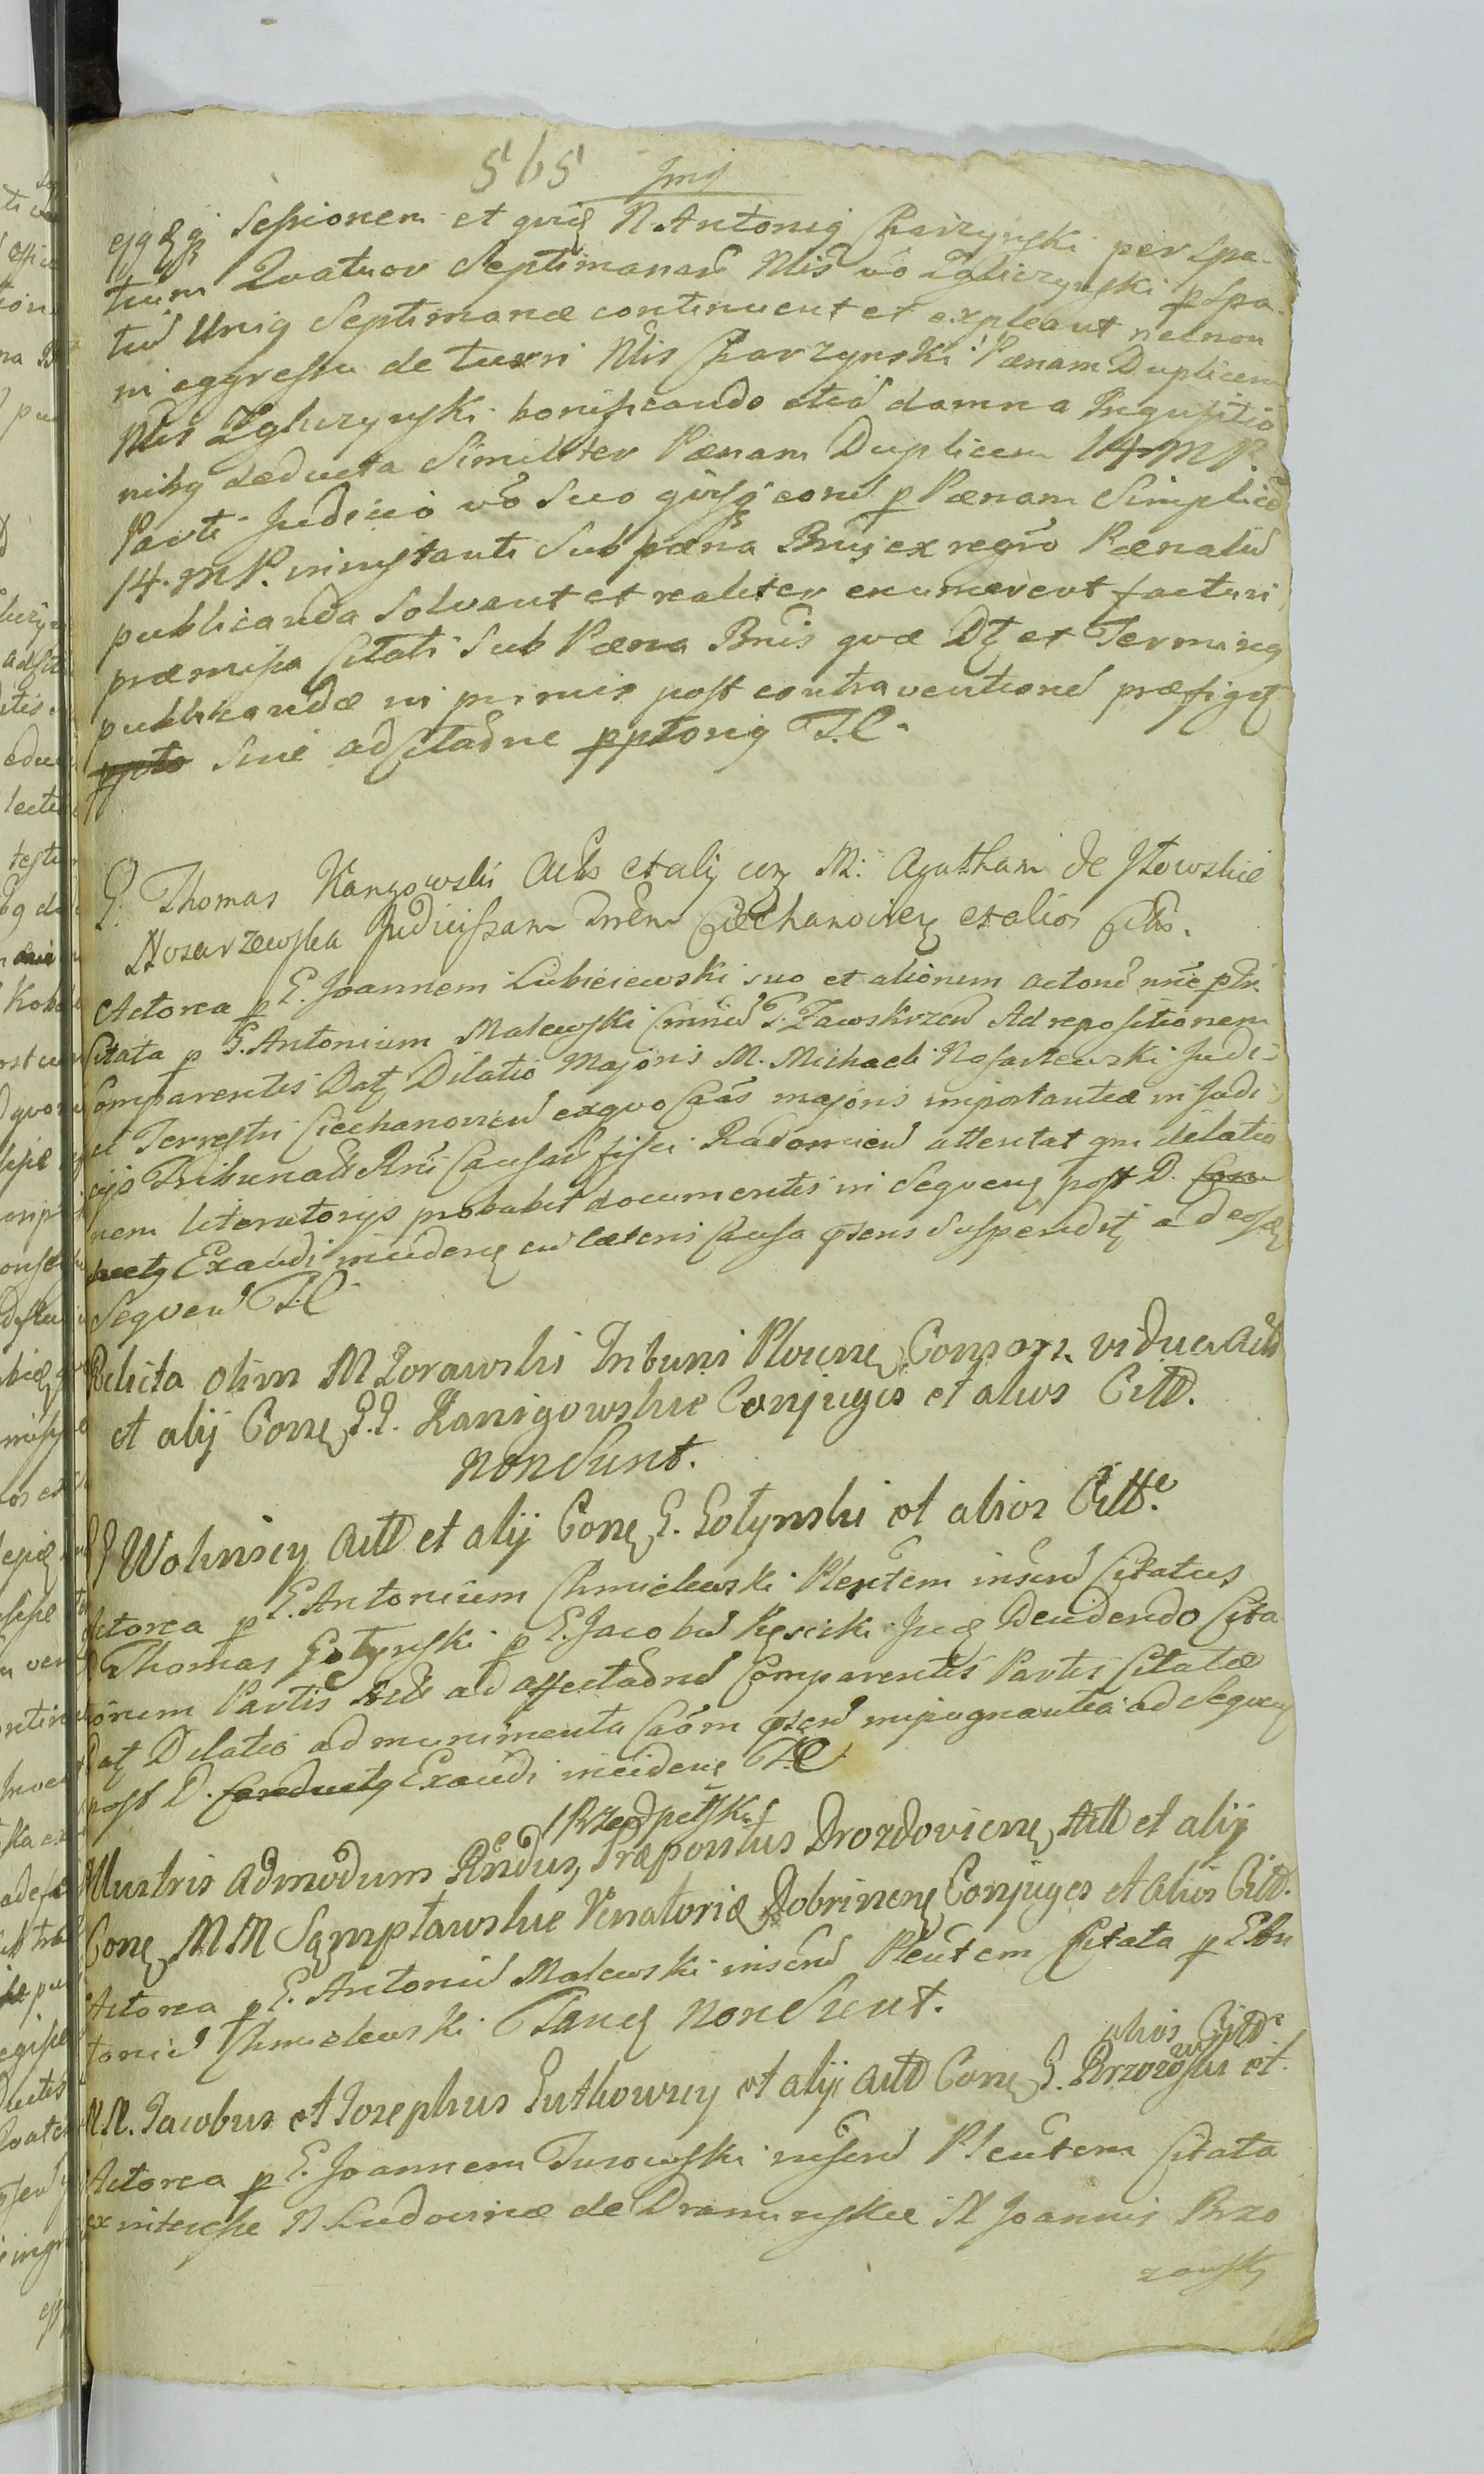 565
Sessionem et quidem N. Antonig Charzynski per spa-
tium Quatuor Septimanarū Nlis vō Zgliczynski p spa-
tiū Unig Septimanæ continuent et expleant necnon
in egressu de turri Nlis Charzynski Pænam Duplicem
Nlis Zgliczynski bonificando etiā damna Inquisitio
nibg deducta Similiter Pænam Duplicem 14 MP.
Parti Judicio vō suo quisq eorū p Pænam Simplicē
14. MP. in instanti Sub pæna Bnis ex regrō Pænaliū
publicanda Solvant et realiter enumerent facturi
præmissa Citati Sub Pæna Bnis quæ et Terming
publicandæ in primis post contraventionē præfiget
Sine adcitatione pptorig T.C.
G. Thomas Kanigowski Acts et alij con M. Agatham de Jłowskie
Nosarzewska Judicissam Trrēm Ciechanovien et alios Citts.
Actorea p G. Joannem Lubieiewski suo et aliorum actorū nrīe ptr.
Citata p G. Antonium Malewski T. Zawskrzeń Ad repositionem
Comparentis Dat Dilatio Majoris M. Michaeli Nosarzewski Judi-
ci Terrestri Ciechanovien ex quo Cāās majoris importantiæ in Judi-
cijs Tribunalis Rnī Causarū fisci Radomień attentat qm dilatio
nem literatorijs probabit documentis in Sequens post D. Con
ducty Exaudi incideng cū cæteris Causa psens Suspendit ad eosd
Sequen T.C.
Relicta olim M Zorawski Tribuni Plocen Consors vidua Acts
et alij Con G.G. Kanigowskie Conjuges et alios Citt.
non Sunt.
GG Wolinscy Actt et alij Con G. Gotynski et alios Citt.
Actorea p G. Antonium Chmielewski Plentem inserū Citatus
G Thomas Gotynski p G. Jacobū Kęsicki Jud Deudendo Cita
tionem Partis Acts ad affectadnē Comparentis Partis Citatæ
Dat Dilatio ad munimenta Cāōm pseū impugnantia ad Sequen
post D. Conducty Exaudi incideng T.C.
Rzedpetski
Illustris Admodum Rndus, Præpositus Drozdoviens Actt et alij
Con MM Sąmpławskie Venatoriæ Dobrinen Conjuges et alios Citt.
Actorea p G. Antoniū Malewski inserū Plentem Citata p G An
toniū Chmielewski Tang non Sunt.
alios Citt
NN. Jacobus et Josephus Gutkowscy et alij Actt Con G. Brzozowski et
Actorea p G. Joannem Turowski inserū Plentem Citata
ex interesse N Ludovicæ de Draminskie N Joannis Brzo
zowski